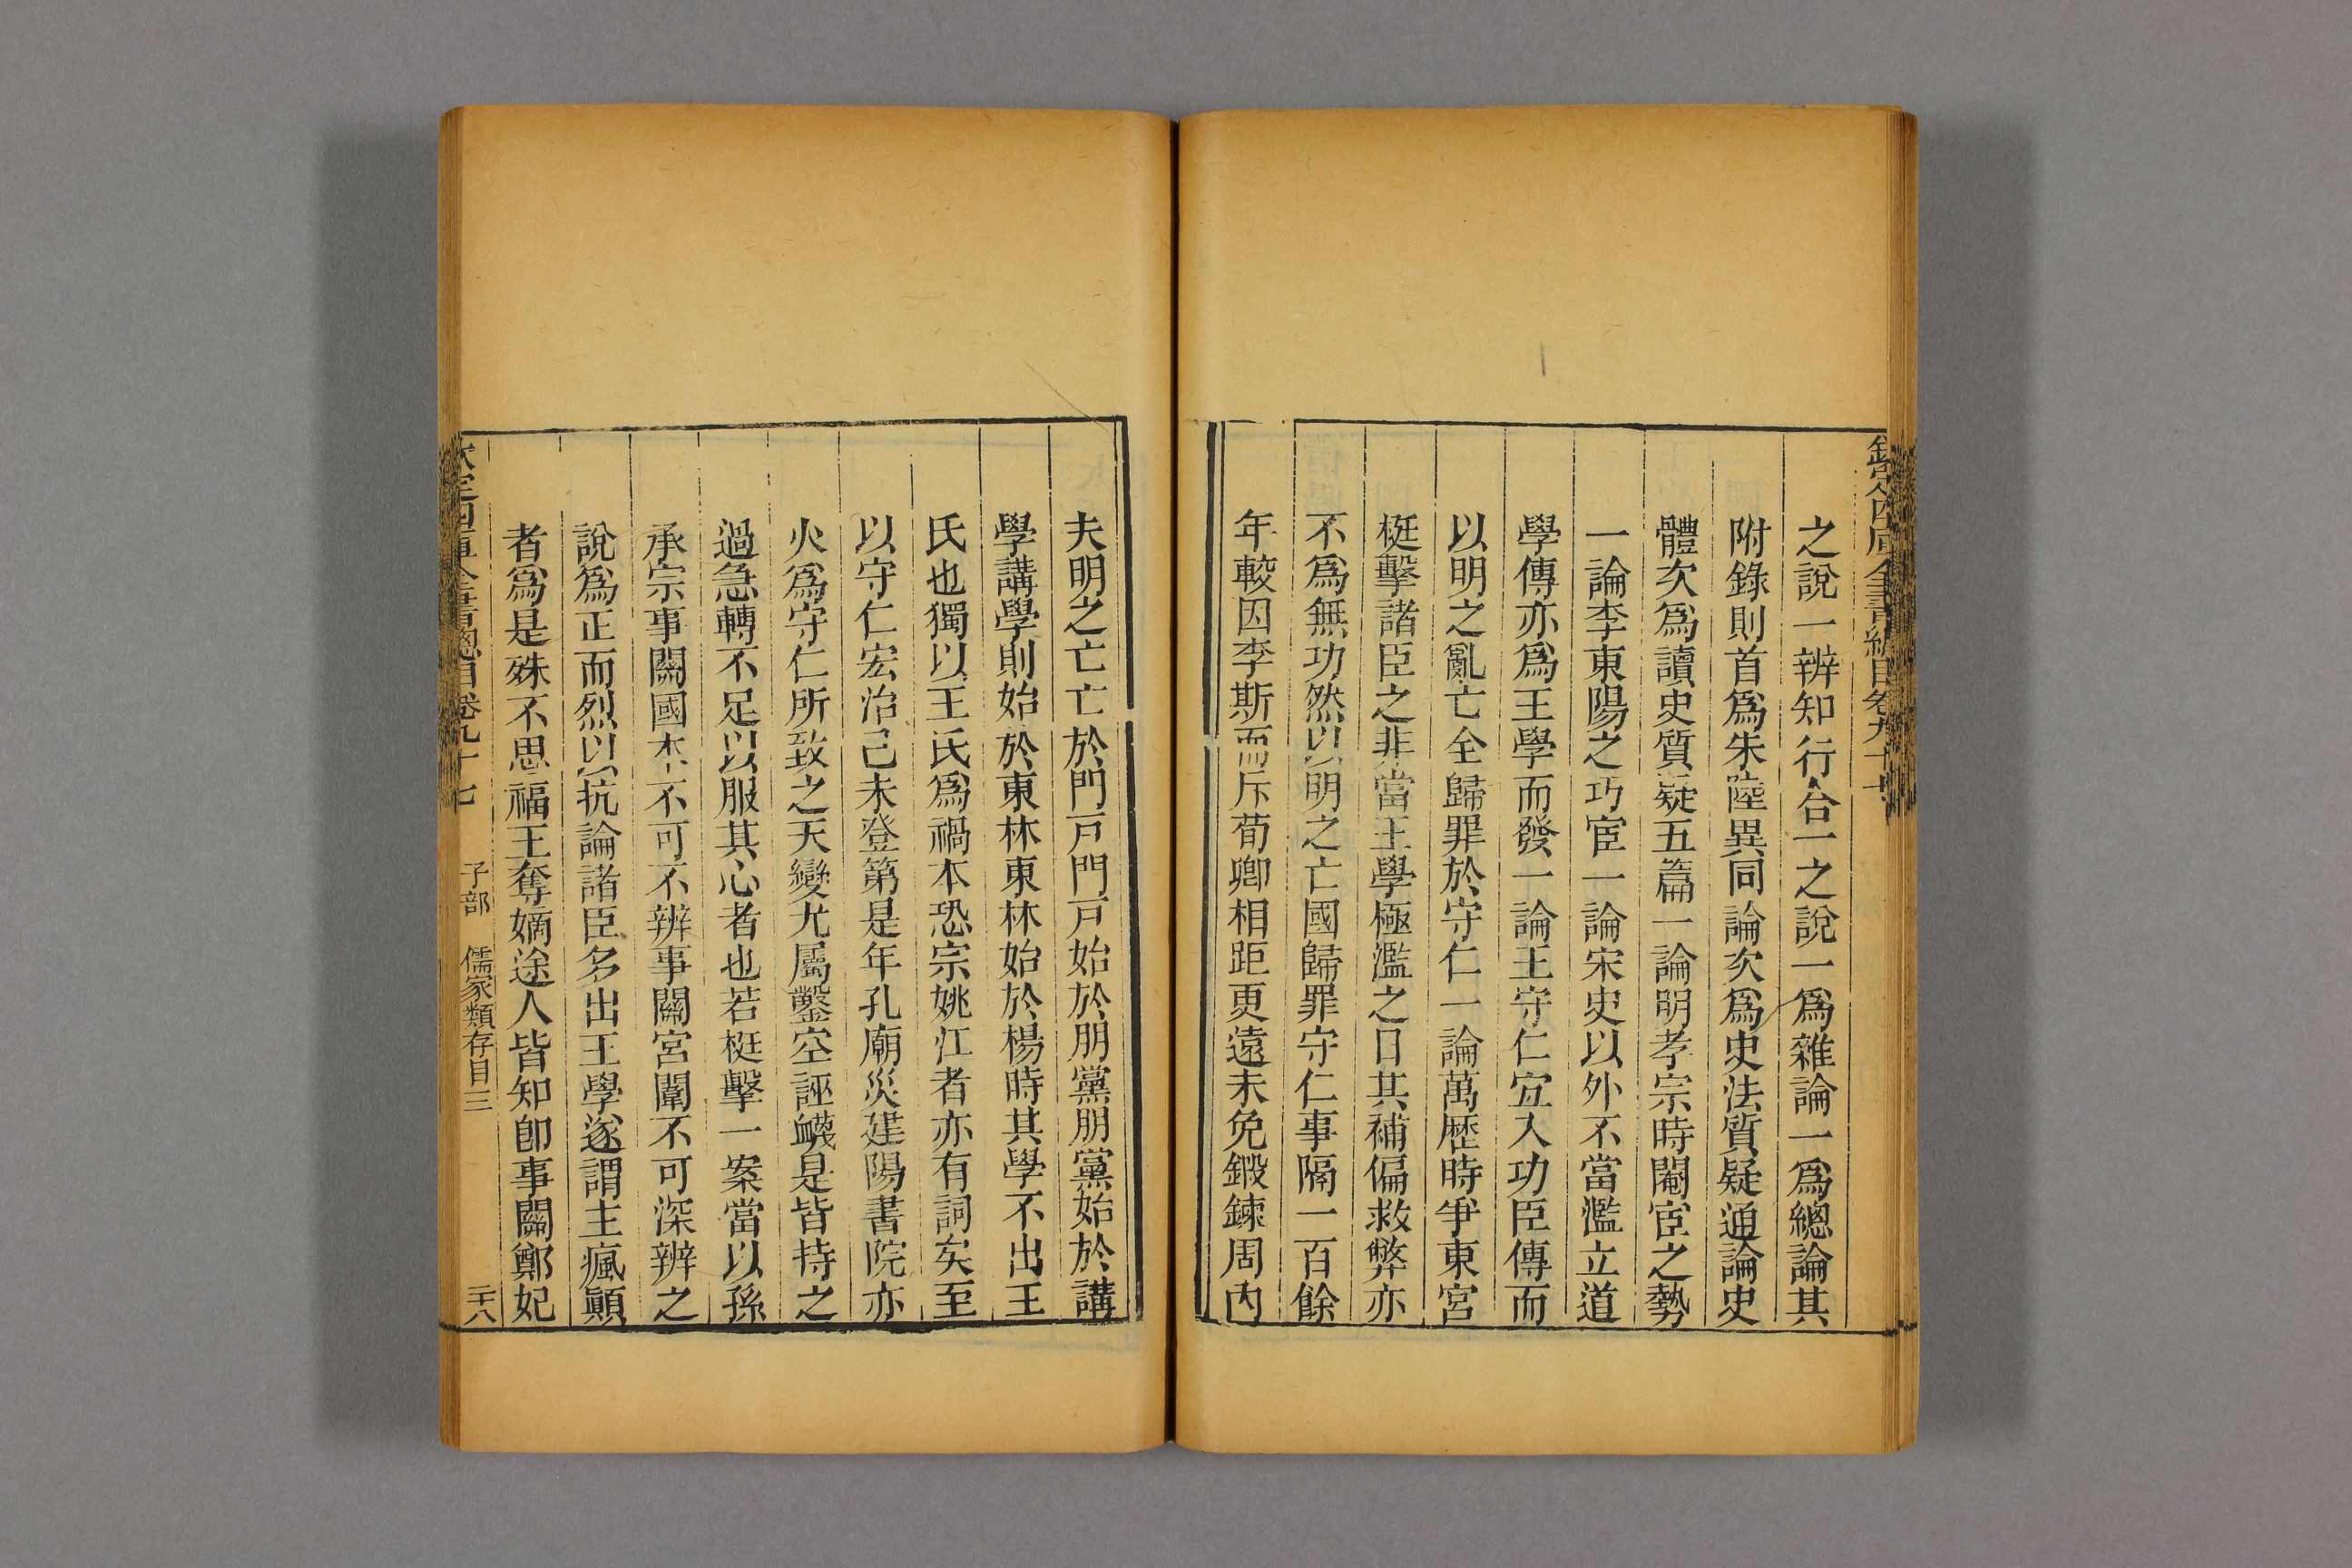 欽定四庫全書總目卷九十七
之說一辨知行合一之說一爲雜論一爲總論其
附錄則首爲朱陸異同論次爲史法質疑通論史
體次爲讀史質疑五篇一論明孝宗時閹宦之勢
一論李東陽之巧宦一論宋史以外不當濫立道
學傳亦爲王學而發一論王守仁宜入功臣傳而
以明之亂亡全歸罪於守仁一論萬歷時爭東宮
梃擊諸臣之非當王學極濫之日其補偏救弊亦
不爲無功然以明之亡國歸罪守仁事隔一百餘
年較因李斯而斥荀卿相距更遠未免鍛鍊周內
夫明之亡亡於門戸門戸始於朋黨朋黨始於講
學講學則始於東林東林始於楊時其學不出王
氏也獨以王氏爲禍本恐宗姚江者亦有詞矣至
以守仁宏治己未登第是年孔廟災建陽書院亦
火爲守仁所致之天變尤屬鑿空誣衊是皆持之
過急轉不足以服其心者也若梃擊一案當以孫
承宗事關國本不可不辨事關宮闈不可深辨之
說爲正而烈以抗論諸臣多出王學遂謂主瘋顚
者爲是殊不思福王奪嫡途人皆知卽事關鄭妃
欽定四庫全書總目卷九十七 子部 儒家類存目三 三十八